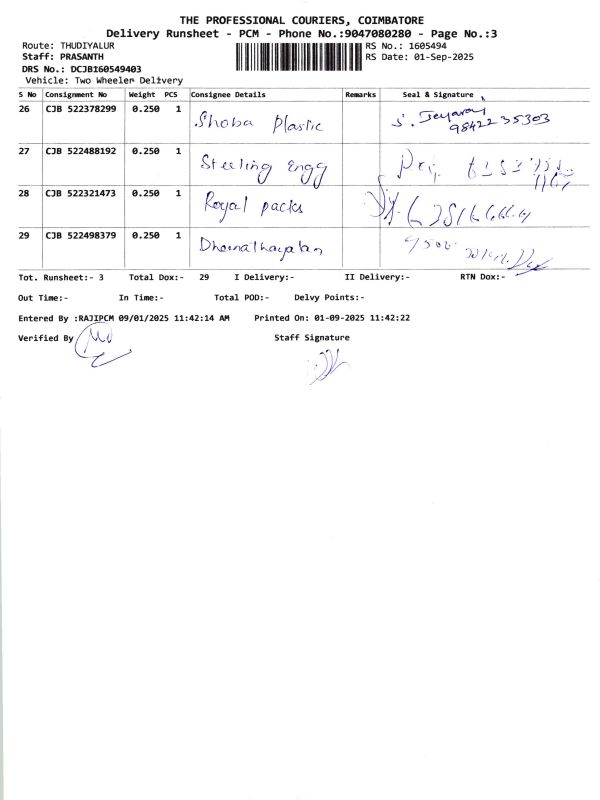 THE PROFESSIONAL COURIERS, COIMBATORE
Delivery Runsheet - PCM - Phone No.:9047080280 - Page No.:3
Route: THUDIYALUR
RS No.: 1605494
Staff: PRASANTH
RS Date: 01-Sep-2025
DRS No.: DCJB160549403
Vehicle: Two Wheeler Delivery
S No Consignment No Weight PCS Consignee Details Remarks Seal & Signature
26 CJB 522378299 0.250 1 Shoba Plastic S. Jeyaraj
98422 35303
27 CJB 522488192 0.250 1 Steeling Engg
28 CJB 522321473 0.250 1 Royal packs
29 CJB 522498379 0.250 1
Tot. Runsheet:- 3 Total Dox:- 29 I Delivery:- II Delivery:- RTN Dox:-
Out Time:- In Time:- Total POD:- Delvy Points:-
Entered By :RAJIPCM 09/01/2025 11:42:14 AM Printed On: 01-09-2025 11:42:22
Verified By Staff Signature